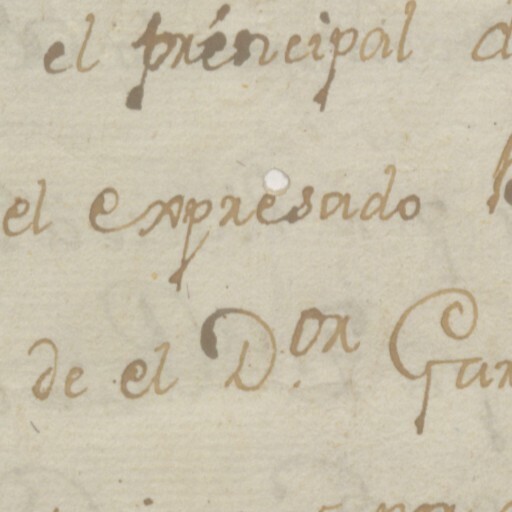 el préncipal
el expresado
de el D.or Gar